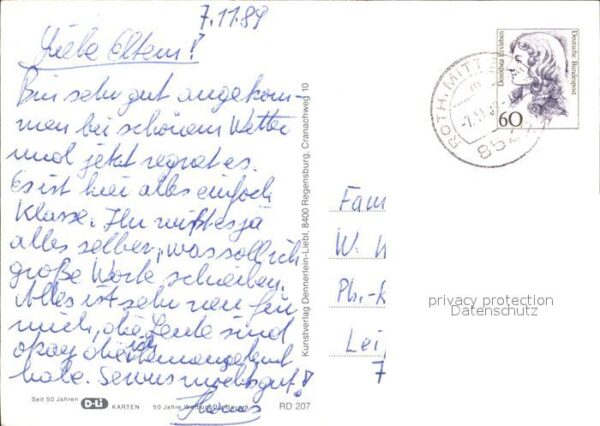 7.11.89
Liebe Eltern!
Bin sehr gut angekom-
men bei schönem Wetter
und jetzt regnet es.
Es ist hier alles einfach
Klasse. Ihr wißt es ja
alles selber, was soll ich
große Worte schreiben.
Alles ist sehr neu für
mich, die Leute sind
okay die ich
habe. Servus machs gut!
Seit 50 Jahren D-Li KARTEN 50 Jahre
RD 207
Kunstverlag Dennerlein-Liebl, 8400 Regensburg, Cranachweg 10
Deutsche Bundespost
Dorothea Erxleben
60
ROTH, MITT
-7.11.89
852
Fam
W. h
Ph.-K
Lei
7
privacy protection
Datenschutz